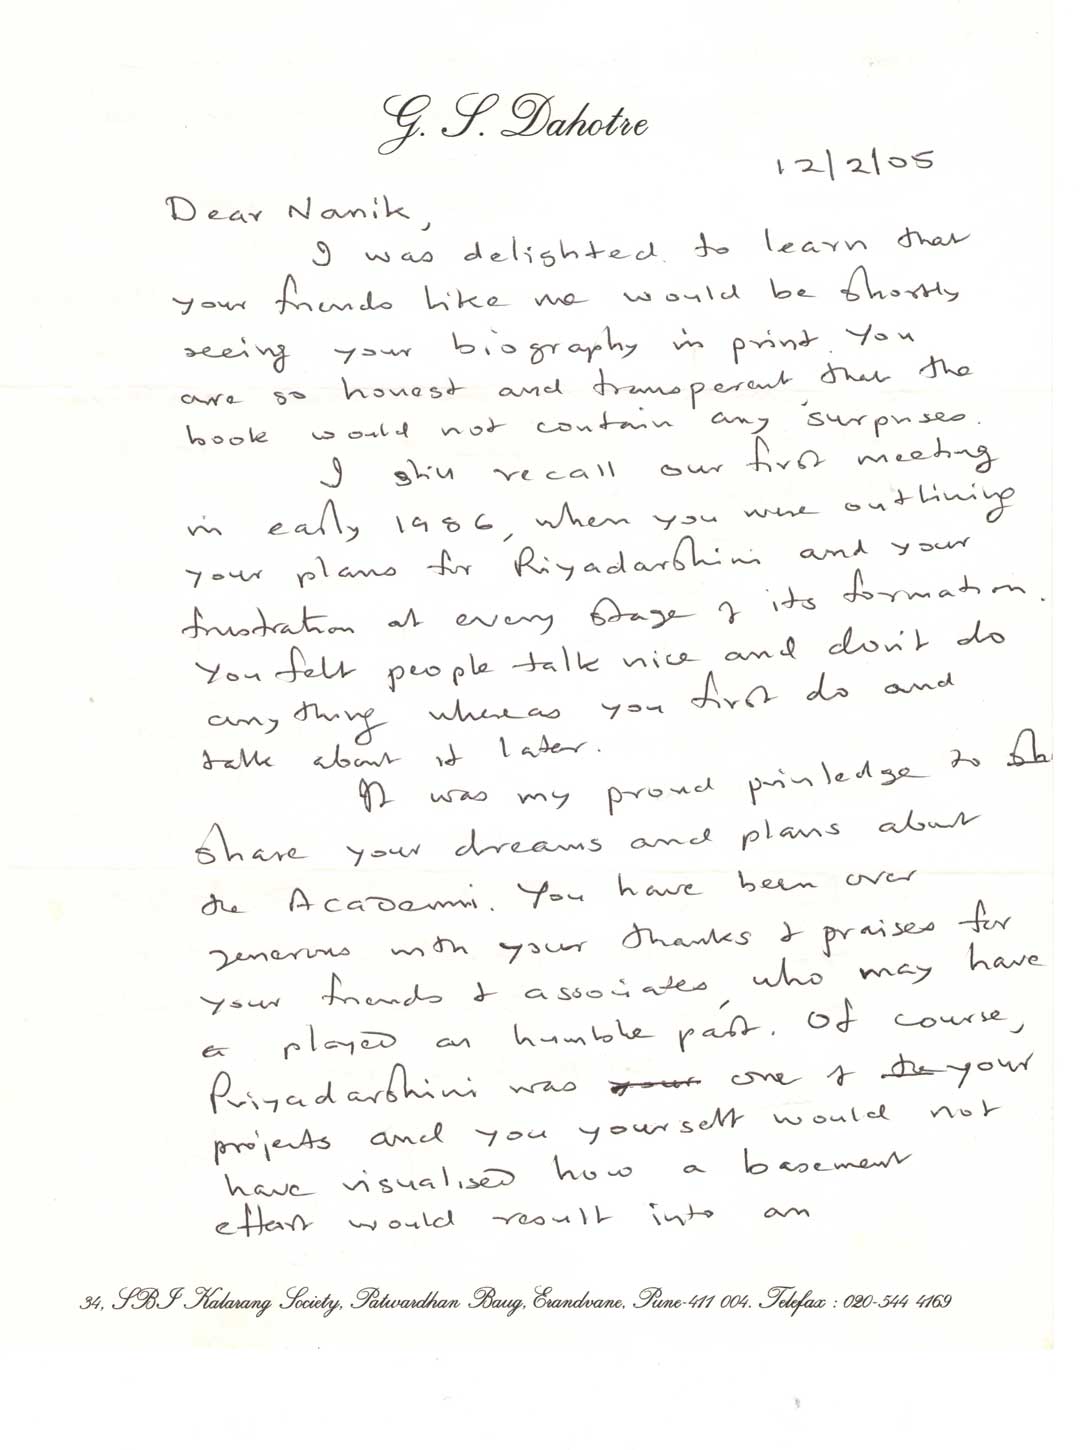 G. S. Dahotre
12/2/05
Dear Nanik,
I was delighted to learn that
your friends like me would be shortly
seeing your biography in print. You
are so honest and transperent that the
book would not contain any surprises.
I still recall our first meeting
in early 1986, when you were outlining
your plans for Priyadarshini and your
frustration at every stage of its formation.
You felt people talk nice and don't do
anything whereas you first do and
talk about it later.
It was my proud priviledge to sha
share your dreams and plans about
the Academi. You have been over
generous with your thanks & praises for
your friends & associates, who may have
a played an humble part. Of course,
Priyadarshini was your one of the your
projects and you yourself would not
have visualised how a basement
effort would result into an
34, SBI Kalarang Society, Patwardhan Baug, Erandvane, Pune-411 004. Telefax : 020-544 4169